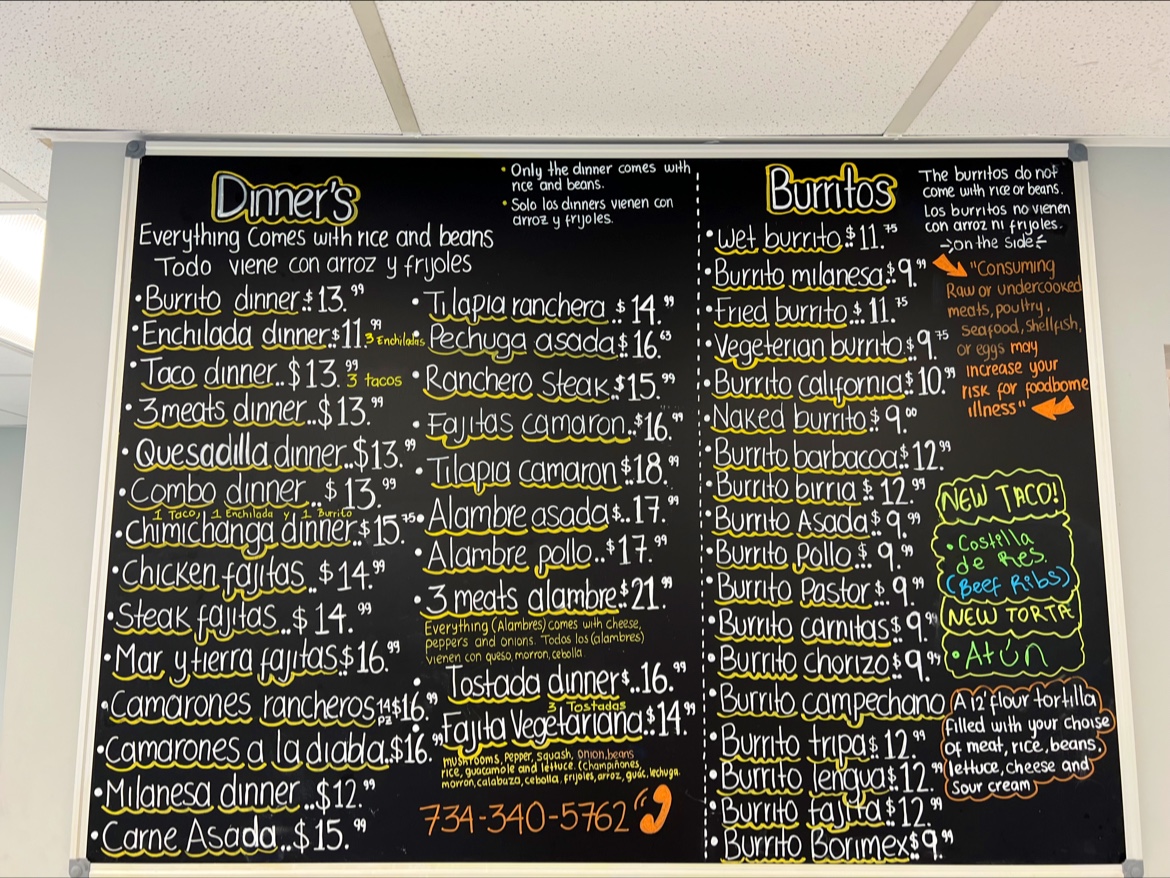 Dinner's
Everything Comes with rice and beans
Todo viene con arroz y frijoles
• Only the dinner comes with
rice and beans.
• Solo los dinners vienen con
arroz y frijoles.
• Burrito dinner..$13.99
• Enchilada dinner..$11.99 3 Enchiladas
• Taco dinner..$13.99 3 tacos
• 3 meats dinner..$13.99
• Quesadilla dinner..$13.99
• Combo dinner..$13.99
1 Taco, 1 Enchilada y 1 Burrito
• Chimichanga dinner..$15.75
• Chicken fajitas..$14.99
• Steak fajitas..$14.99
• Mar y tierra fajitas..$16.99
• Camarones rancheros 14 pz $16.99
• Camarones a la diabla..$16.99
• Milanesa dinner..$12.99
• Carne Asada..$15.99
• Tilapia ranchera..$14.99
• Pechuga asada..$16.63
• Ranchero Steak..$15.99
• Fajitas camaron..$16.99
• Tilapia camaron..$18.99
• Alambre asada$..17.99
• Alambre pollo..$17.99
• 3 meats alambre..$21.99
Everything (Alambres) comes with cheese,
peppers and onions. Todos los (alambres)
vienen con queso, morron, cebolla.
• Tostada dinner$..16.99
3 Tostadas
• Fajita Vegetariana..$14.99
mushrooms, Pepper, squash, onion, beans
rice, guacamole and lettuce. (champiñones,
morron, calabaza, cebolla, frijoles, arroz, guac, lechuga.
734-340-5762
Burritos
The burritos do not
come with rice or beans.
Los burritos no vienen
con arroz ni frijoles.
on the side
• Wet burrito..$11.75
• Burrito milanesa..$9.99
• Fried burrito..$11.75
• Vegeterian burrito..$9.75
• Burrito california..$10.99
• Naked burrito..$9.00
• Burrito barbacoa..$12.99
• Burrito birria..$12.99
• Burrito Asada..$9.99
• Burrito Pollo..$9.99
• Burrito Pastor..$9.99
• Burrito carnitas..$9.99
• Burrito chorizo..$9.99
• Burrito campechano
• Burrito tripa..$12.99
• Burrito lengua..$12.99
• Burrito fajita..$12.99
• Burrito Borimex..$9.99
"Consuming
Raw or undercooked
meats, poultry,
seafood, shellfish,
or eggs may
increase your
risk for foodborne
illness"
NEW TACO!
• Costilla
de Res
(Beef Ribs)
NEW TORTA
• Atún
A 12" flour tortilla
filled with your choise
of meat, rice, beans,
lettuce, cheese and
sour cream